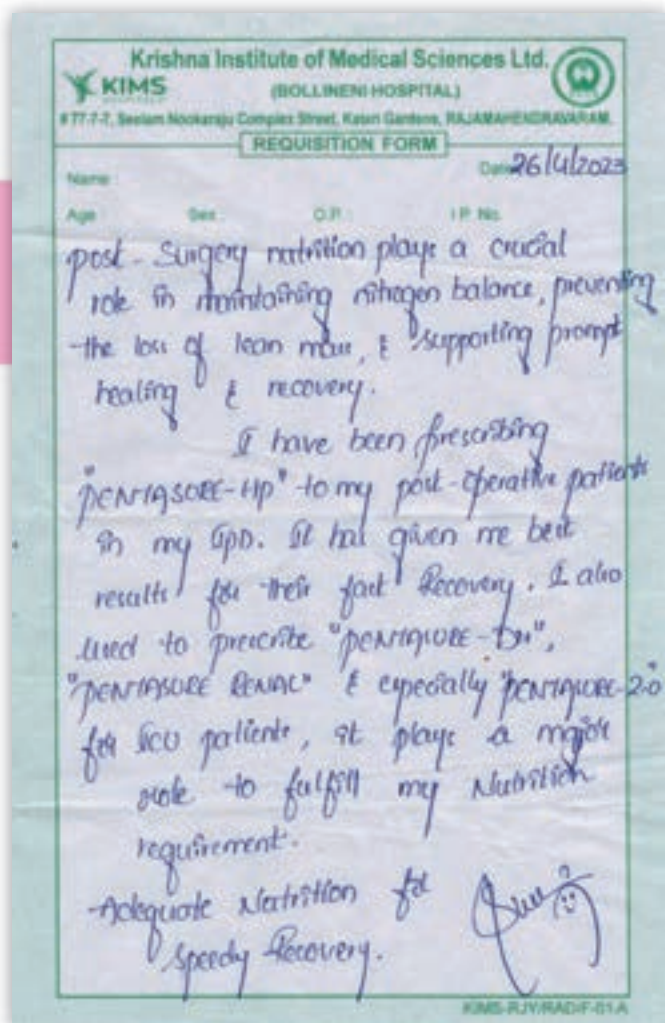 Krishna Institute of Medical Sciences Ltd.
KIMS
HOSPITALS
(BOLLINENI HOSPITAL)
# 77-7-7, Seelam Nookaraju Complex Street, Kesari Gardens, RAJAMAHENDRAVARAM.
REQUISITION FORM
Name :
Date 26/4/2023
Age : Sex : O.P. : I.P. No.
post-Surgery nutrition plays a crucial
role in maintaining nitrogen balance, preventing
the loss of lean mass, & supporting prompt
healing & recovery.
I have been prescribing
"PENTASURE-HP" to my post-operative patients
in my OPD. It has given me best
results for their fast Recovery. I also
used to prescribe "PENTASURE-DM",
"PENTASURE RENAL" & especially "PENTASURE-2.0"
for ICU patients, it plays a major
role to fulfill my Nutrition
requirement.
Adequate Nutrition for
speedy Recovery.
KIMS-RJY/RAD/F-01-A